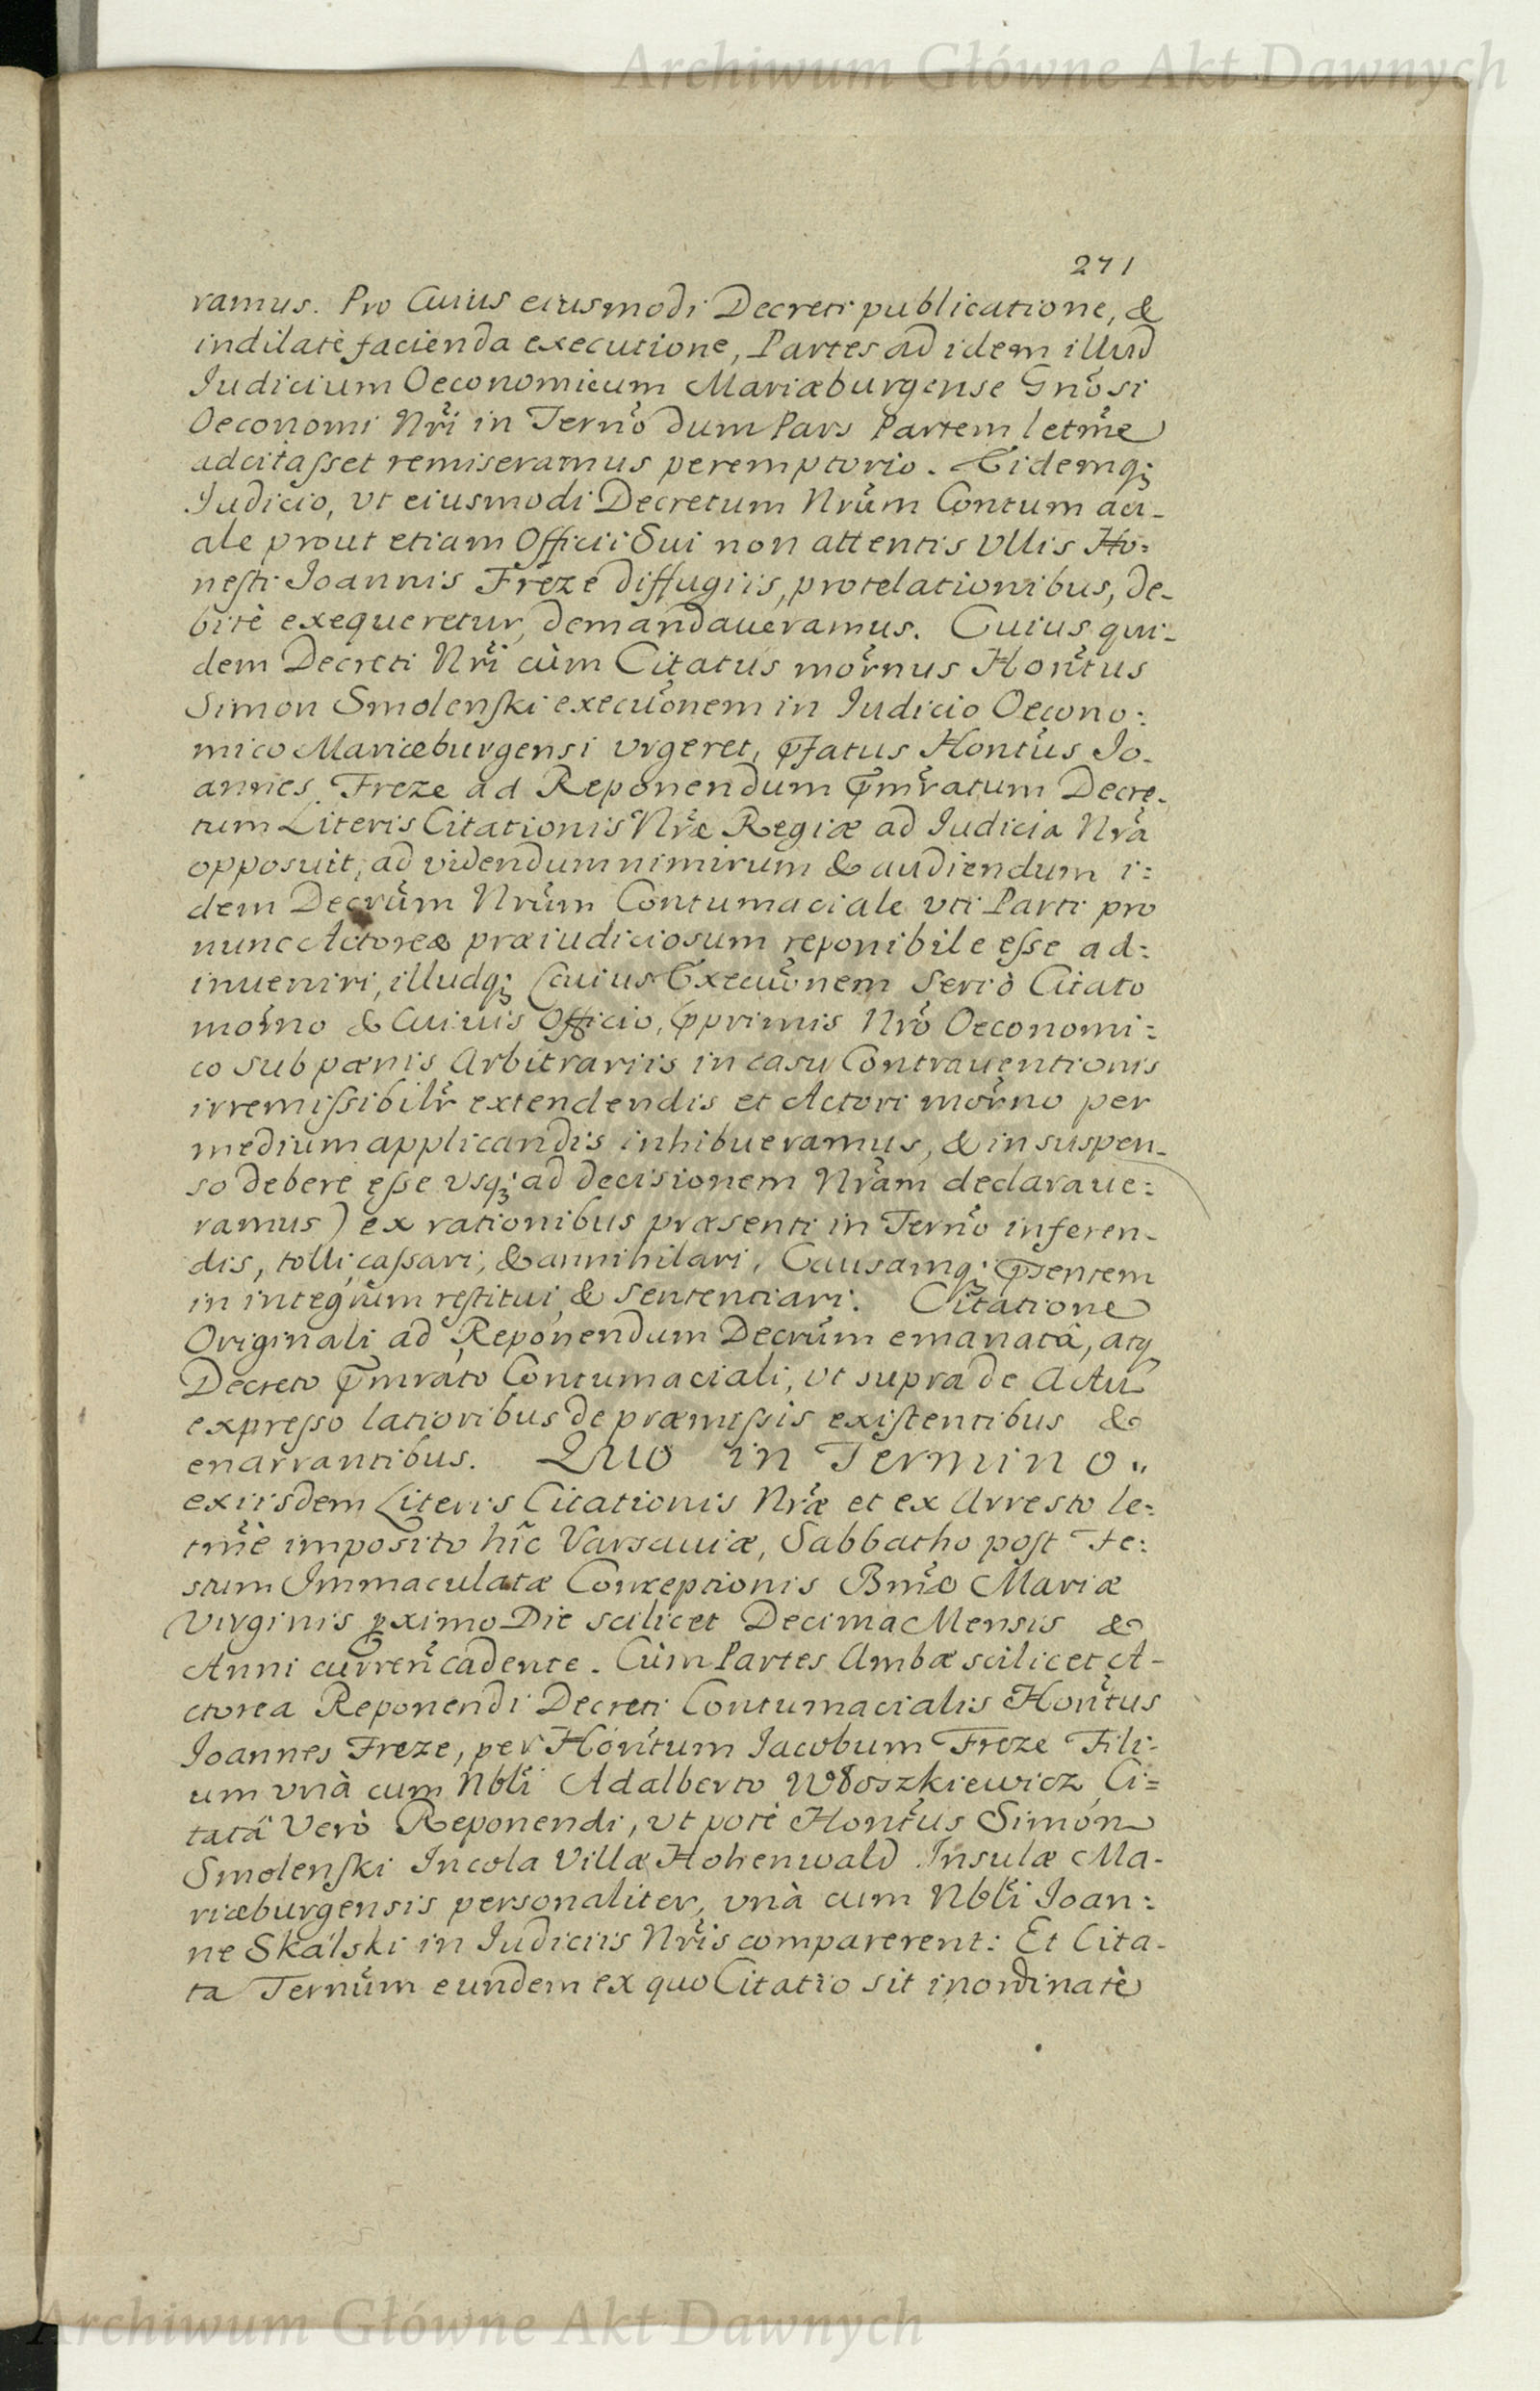 Archiwum Główne Akt Dawnych
271
ramus. Pro Cuius eiusmodi Decreti publicatione, &
indilatè facienda executione, Partes ad idem illud
Iudicium Oeconomicum Mariæburgense Gnosi
Oeconomi Nri in Terno dum Pars Partem letme
adcitaſset remiseramus peremptorio. Eidemq;
Iudicio, vt eiusmodi Decretum Nrum Contumaci-
ale prout etiam Officii Sui non attentis Vllis Ho-
neſti Ioannis Freze diffugiis, protelationibus, de-
bitè exequeretur, demandaueramus. Cuius qui-
dem Decreti Nri cùm Citatus mornus Hontus
Simon Smolenſki execuonem in Iudicio Oecono-
mico Mariæburgensi vrgeret, pfatus Hontus Io-
annes Freze ad Reponendum pmratum Decre-
tum Literis Citationis Nræ Regiæ ad Iudicia Nra
opposuit, ad videndum nimirum & audiendum i-
dem Decrum Nrum Contumaciale vti Parti pro
nunc Actoreæ præiudiciosum reponibile eſse ad-
inueniri, illudq; (cuius Execuonem Seriò Citato
morno & Cuiuis Officio, pprimis Nro Oeconomi-
co sub pænis Arbitrariis in casu Contrauentionis
irremiſsibilr extendendis et Actori morno per
medium applicandis inhibueramus, & in suspen-
so debere eſse vsq; ad decisionem Nram declaraue-
ramus) ex rationibus præsenti in Terno inferen-
dis, tolli, caſsari, & annihilari, Causamq; psentem
in integrum reſtitui & Sentenciari. Citatione
Originali ad Reponendum Decrum emanatâ, atq
Decreto pmrato Contumaciali, vt supra de Actu
expreſso latioribus de præmiſsis exiſtentibus &
enarrantibus. Quo in Termino
ex iisdem Literis Citationis Nræ et ex Arresto le-
tmè imposito hic Varsauiæ, Sabbatho poſt Fe-
stum Immaculatæ Conceptionis Bmæ Mariæ
Virginis pximo Die scilicet Decima Mensis &
Anni curren cadente. Cùm Partes Ambæ scilicet A-
ctorea Reponendi Decreti Contumacialis Hontus
Ioannes Freze, per Hontum Iacobum Freze Fili-
um vnà cum Nbli Adalberto Włoszkiewicz, Ci-
tatâ Verò Reponendi, vt potè Hontus Simon
Smolenſki Incola Villæ Hohenwald Insulæ Ma-
riæburgensis personaliter, vnà cum Nbli Ioan-
ne Skálski in Iudiciis Nris comparerent: Et Cita-
ta Ternum eundem ex quo Citatio sit inordinatè
Archiwum Główne Akt Dawnych